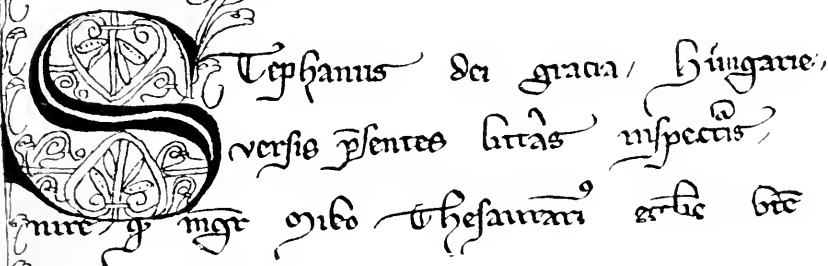 Stephanus dei gracia, Hungarie,
versis p̄sentes litt̄as inspectͣis,
nire, qͥ mgr̄ Miko Thesaurariꝰ ecclīe btē